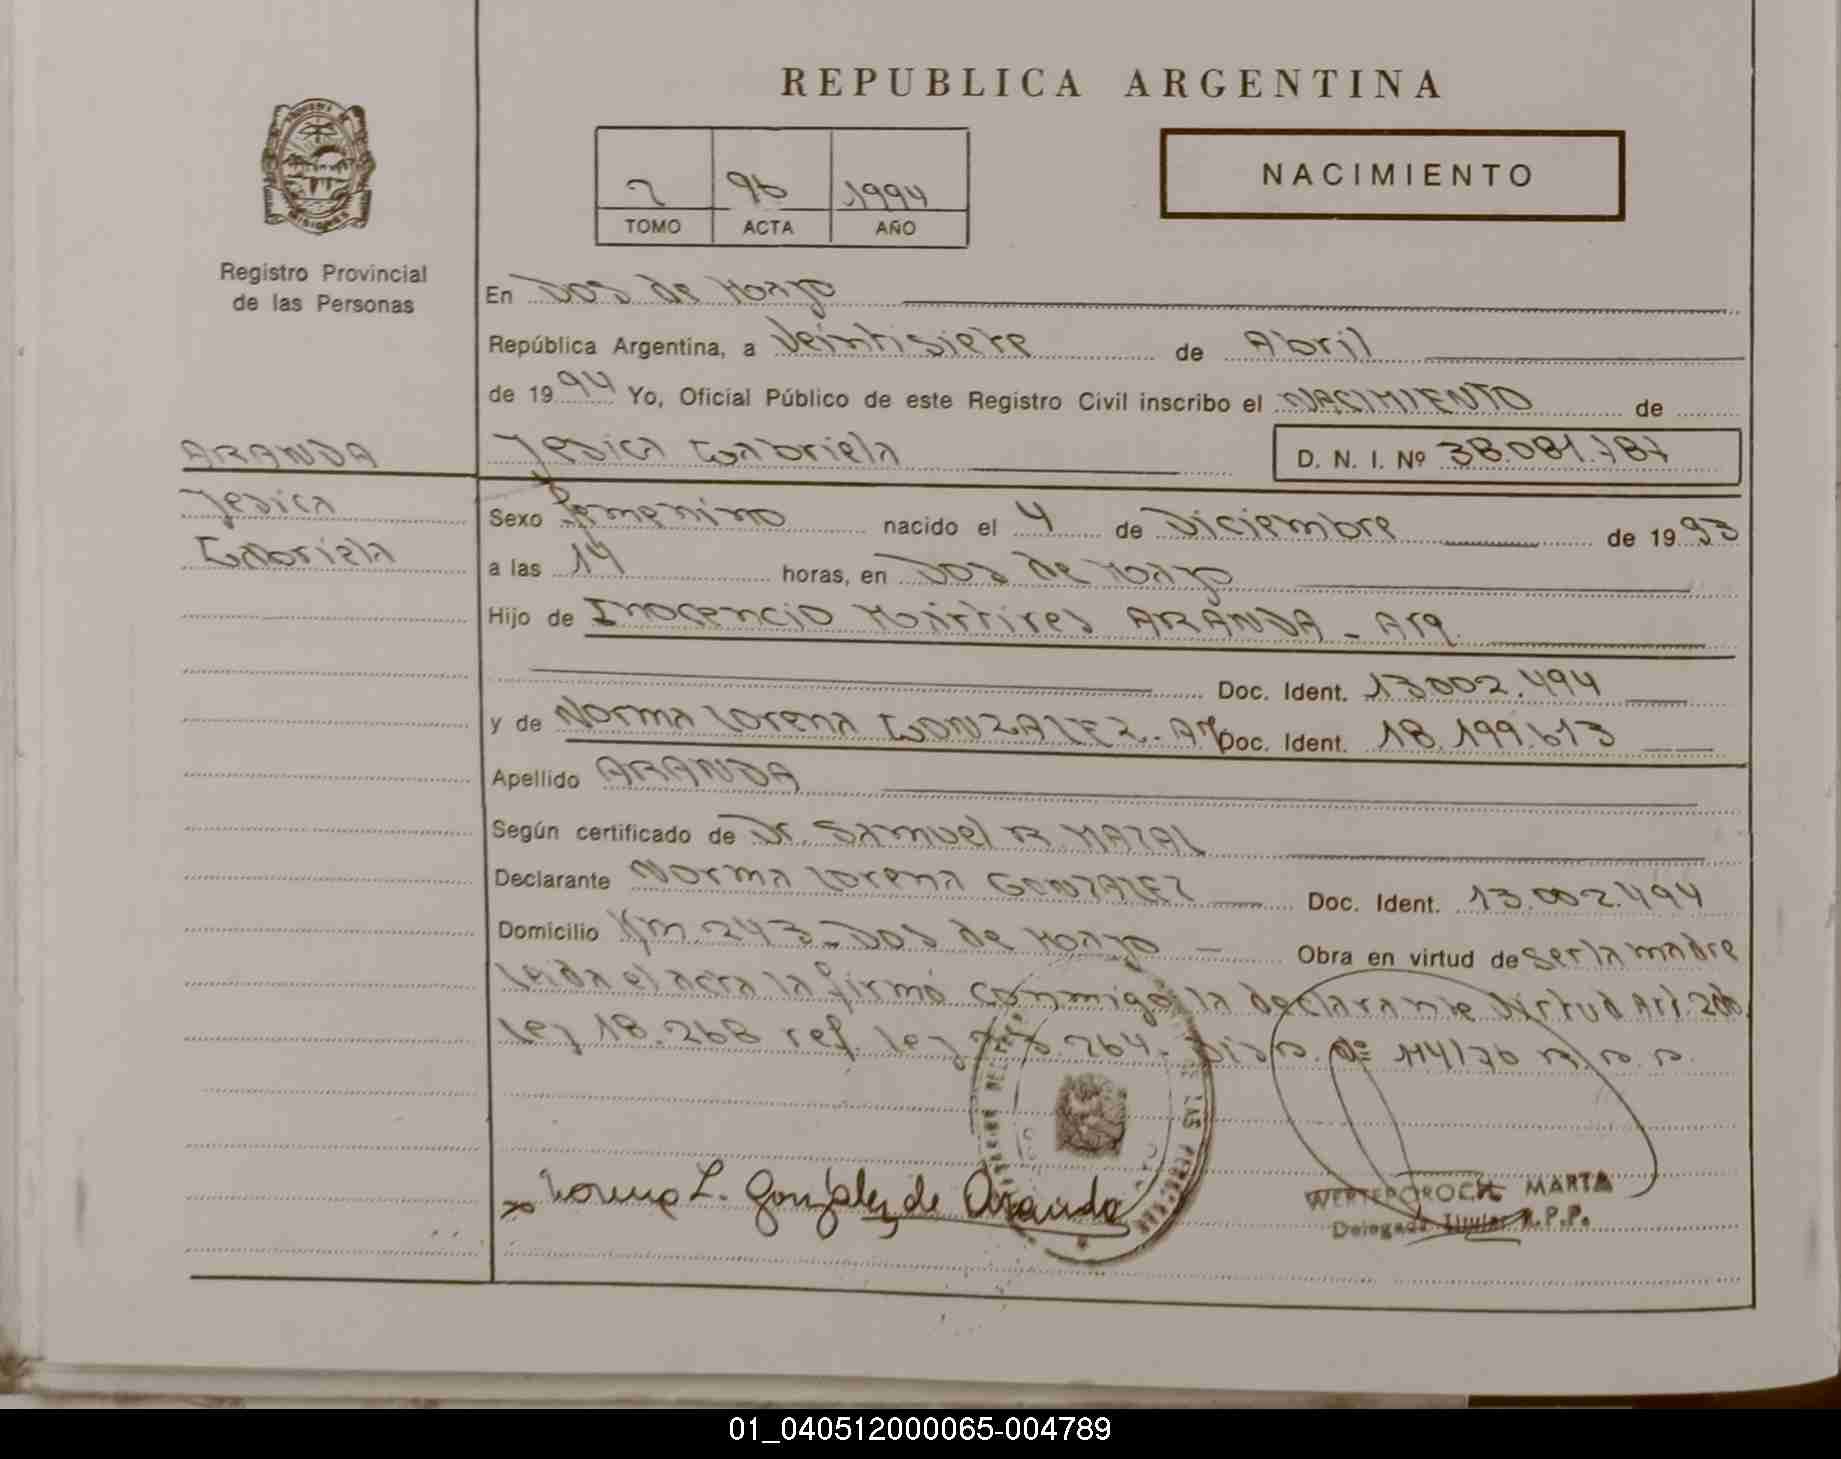 REPUBLICA ARGENTINA
NACIMIENTO
2 96 1994
TOMO ACTA AÑO
Registro Provincial
de las Personas
En Dos de Mayo
República Argentina, a Veintisiete de Abril
de 1994 Yo, Oficial Público de este Registro Civil inscribo el NACIMIENTO de
ARANDA Jesica Gabriela D. N. I. Nº 38.081.787
Jesica
Gabriela
Sexo femenino nacido el 4 de Diciembre de 1993
a las 14 horas, en Dos de Mayo
Hijo de Inocencio Mártires ARANDA - Arg.
Doc. Ident. 13.002.494
y de Norma Lorena GONZALEZ - Arg Doc. Ident. 18.199.613
Apellido ARANDA
Según certificado de Dr. Samuel R. MAZAL
Declarante Norma Lorena GONZALEZ Doc. Ident. 13.002.494
Domicilio Km 243 - Dos de Mayo - Obra en virtud de ser la madre
leida el acta la firmó conmigo la declarante virtud Art.
Ley 18.268 ref. Ley 264. Disp. Nº 114/76 R.P.P.
Lorena L. González de Aranda
WERTEPOROCH MARTA
Delegada Titular R.P.P.
01_040512000065-004789